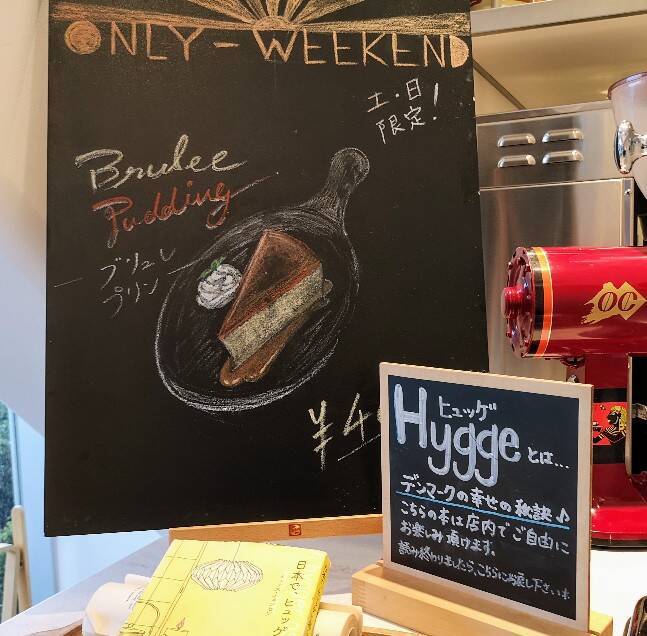 ONLY-WEEKEND
土・日
限定!
Brulee
Pudding
ブリュレ
プリン
¥4
ヒュッゲ
Hyggeとは...
デンマークの幸せの秘訣♪
こちらの本は店内でご自由に
お楽しみ頂けます。
読み終わりましたら、こちらにお戻し下さいませ
日本で、ヒュッゲ
OC